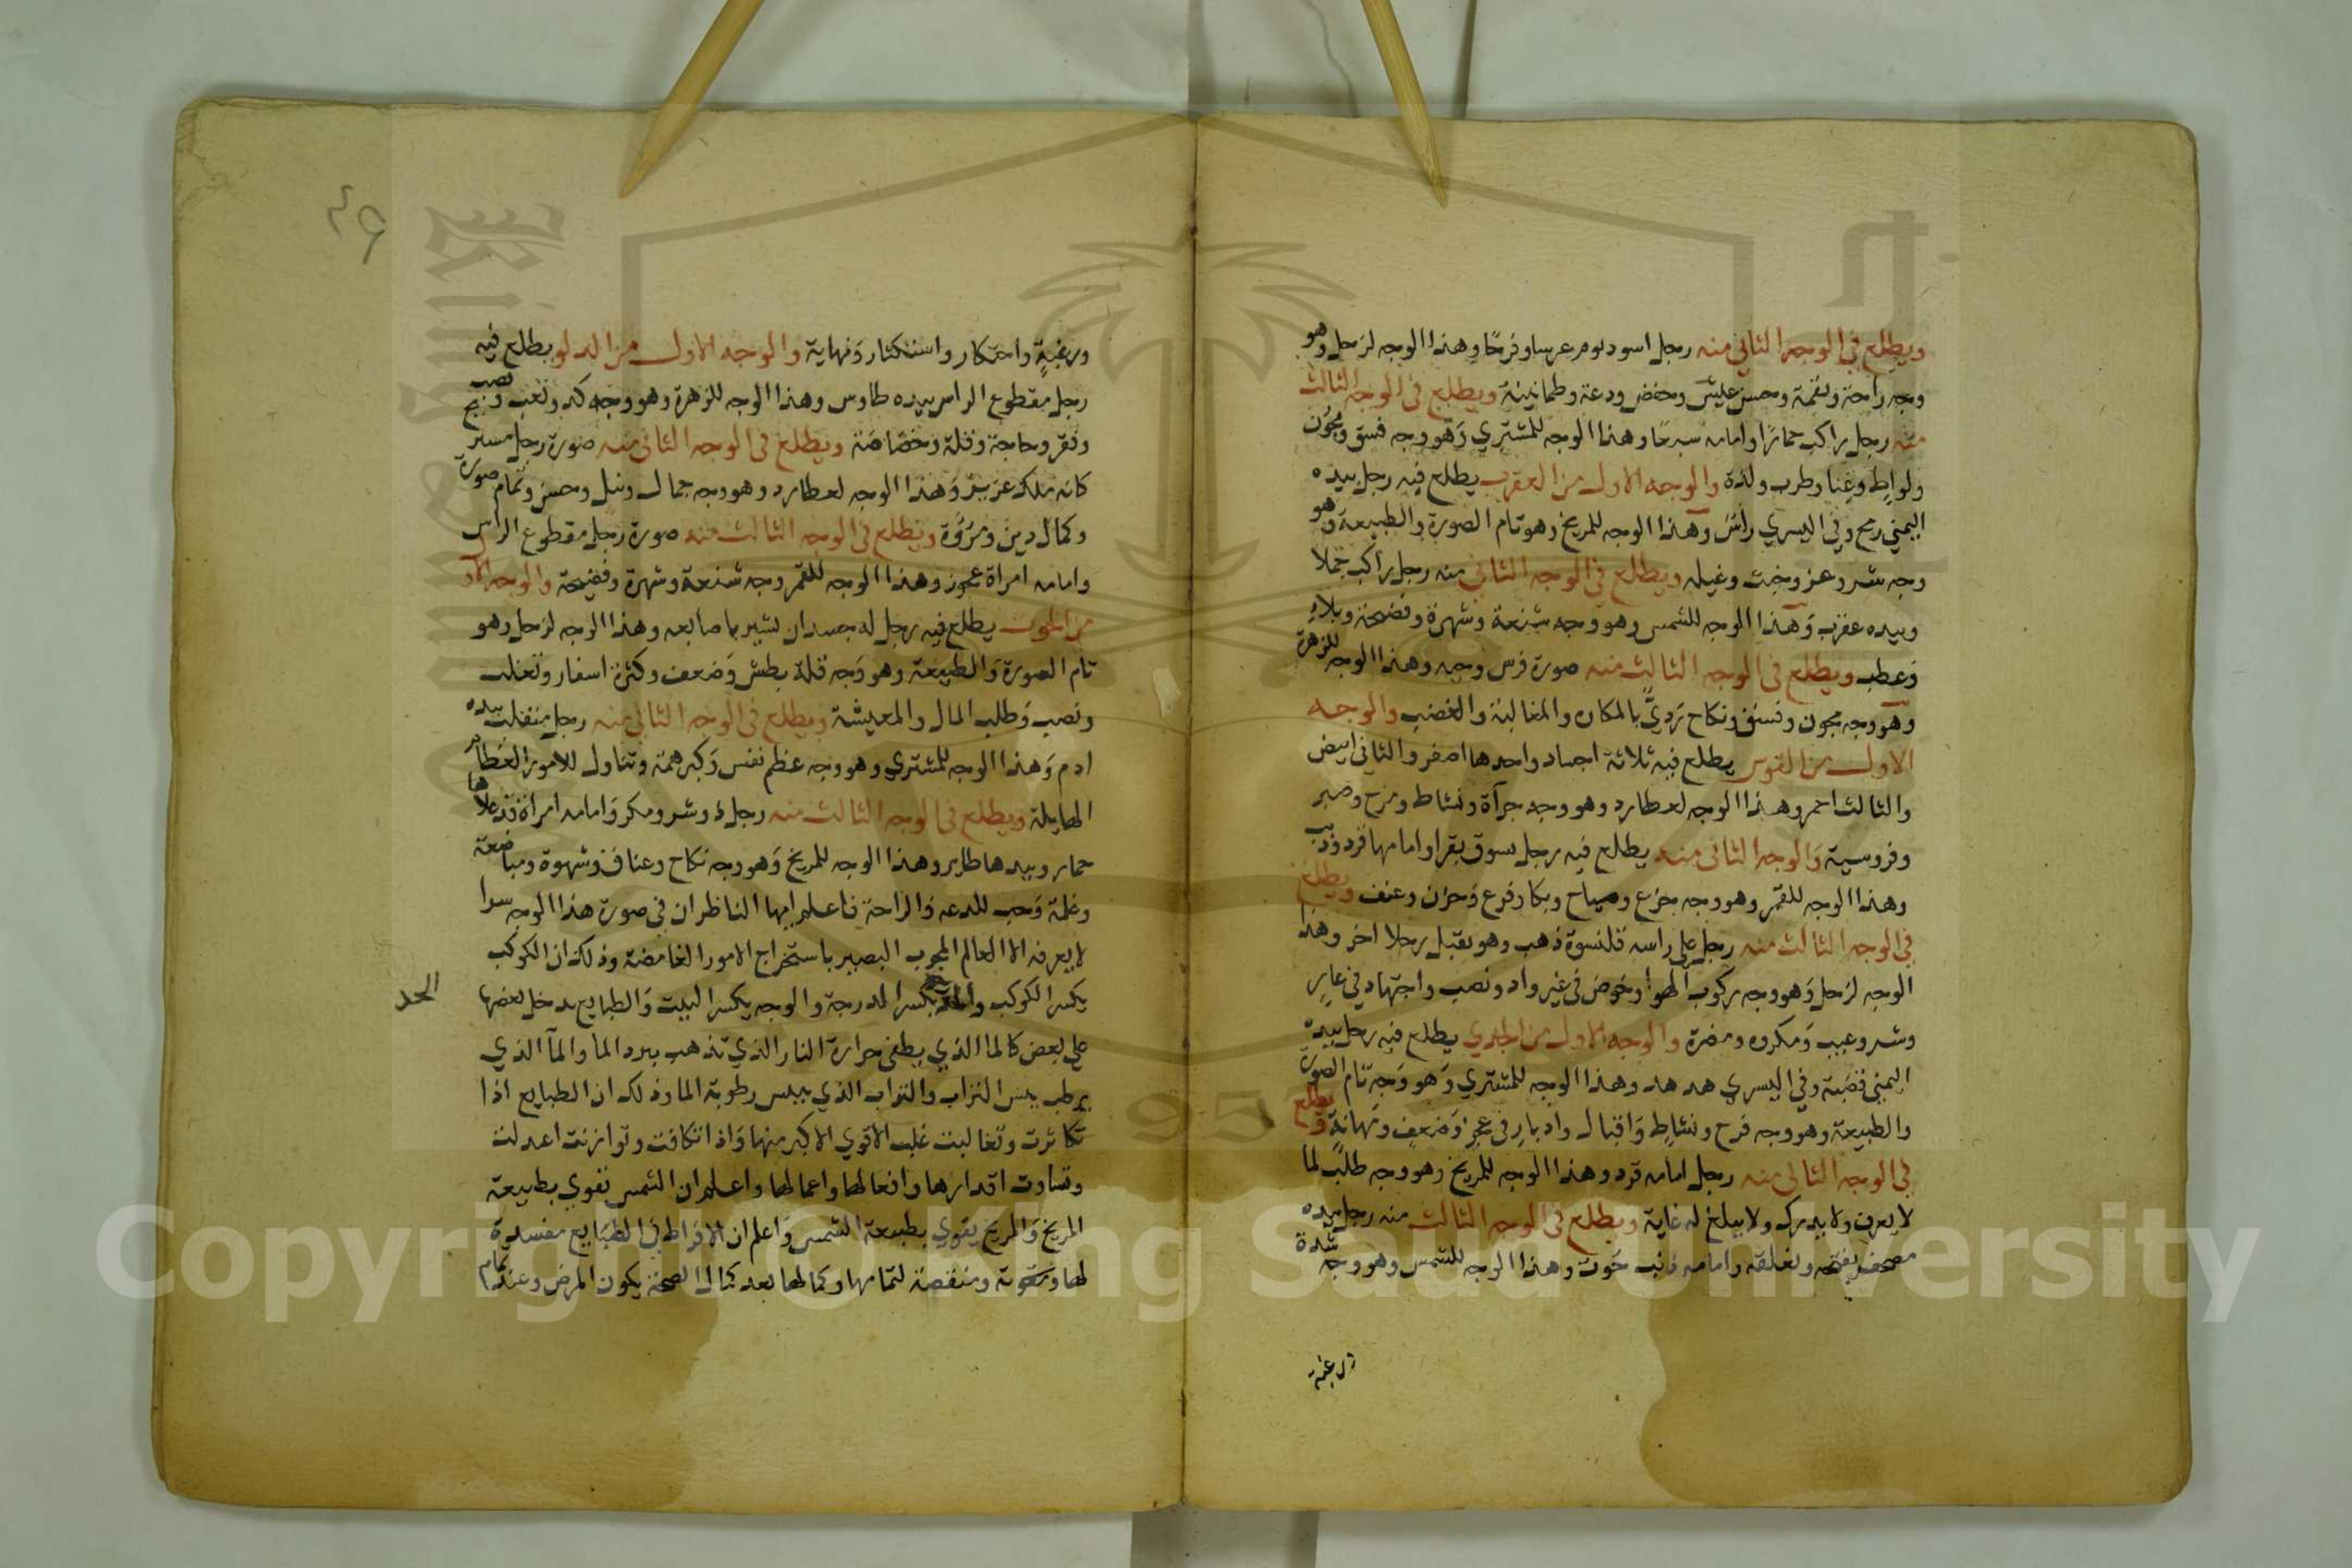 ويطلع في الوجه الثاني منه رجل اسود يوم عرسا وفرحا وهذا الوجه لزحل وهو
وجه راحة ونعمة وحسن عيش وخفض ودعة وطمانينة ويطلع في الوجه الثالث
منه رجل راكب حمارا وامامه سبرحا وهذا الوجه للمشتري وهو وجه فسق ومجون
ولواط وغنا وطرب ولذة والوجه الاول من العقرب يطلع فيه رجل بيده
اليمني رمح وفي اليسري راس وهذا الوجه للمريخ وهو تام الصورة والطبيعة وهو
وجه شر وغز وخبث وغيله ويطلع في الوجه الثاني منه رجل راكب جملا
وبيده عقرب وهذا الوجه للشمس وهو وجه شنعة وشهرة وفضيحة وبلاء
وعطب ويطلع في الوجه الثالث منه صورة فرس وحيه وهذا الوجه للزهرة
وهو وجه مجون وفسق ونكاح ردي بالمكان والمغالبة والغضب والوجه
الاول من القوس يطلع فيه ثلاثة اجساد واحدها اصفر والثاني ابيض
والثالث احمر وهذا الوجه لعطارد وهو وجه جرآة ونشاط ومرح وصبر
وفروسية والوجه الثاني منه يطلع فيه رجل يسوق بقرا وامامها قرد وذيب
وهذا الوجه للقمر وهو وجه جزع وصياح وبكا وفزع وحزن وعنف ويطلع
في الوجه الثالث منه رجل على راسه قلنسوة ذهب وهو يقتل رجلا اخر وهذا
الوجه لزحل وهو وجه ركوب الهوا وخوض في غير واد ونصب واجتهاد في عاير
وشر وعيب ومكروه ومضرة والوجه الاول من الجدي يطلع فيه رجل بيده
اليمني قصبة وفي اليسري هدهد وهذا الوجه للمشتري وهو وجه تام الصورة
والطبيعة وهو وجه فرح ونشاط واقبال وادبار في عجز وضعف ومهانة ويطلع
في الوجه الثاني منه رجل امامه قرد وهذا الوجه للمريخ وهو وجه طلب لما
لا يعرف ولا يدرك ولا يبلغ له غاية ويطلع في الوجه الثالث منه رجل بيده
مصحف يفتحه ويغلقه وامامه ذنب حوت وهذا الوجه للشمس وهو وجه شدة
ورغبة
٤٩
ورغبة واحتكار واستكثار ونهاية والوجه الاول من الدلو يطلع فيه
رجل مقطوع الراس بيده طاوس وهذا الوجه للزهرة وهو وجه كد وتعب ونصب
وفقر وحاجة وقلة وخصاصة ويطلع في الوجه الثاني منه صورة رجل
كانه ملك عزيز وهذا الوجه لعطارد وهو وجه جمال ونبل وحسن وتمام صورة
وكمال دين ومروة ويطلع في الوجه الثالث منه صورة رجل مقطوع الراس
وامامه امراة عجوز وهذا الوجه للقمر وجه شنعة وشهرة وفضيحة والوجه الاول
من الحوت يطلع فيه رجل له جسدان يشير باصابعه وهذا الوجه لزحل وهو
تام الصورة والطبيعة وهو وجه قلة بطش وضعف وكثرة اسفار وتغلب
ونصب وطلب المال والمعيشة ويطلع في الوجه الثاني منه رجل منقلب بيده
ادم وهذا الوجه للمشتري وهو وجه عظم نفس وكبر همة وتناول للامور العظام
الهايلة ويطلع في الوجه الثالث منه رجل ذو شر ومكر وامامه امراة قد علاها
حمار وبيدها طاير وهذا الوجه للمريخ وهو وجه نكاح وعناق وشهوة ومباضعة
وغلمة وحب للدعه والراحة فاعلم ايها الناظر ان في صورة هذا الوجه سرا
لا يعرفه الا العالم المجرب البصير باستخراج الامور الغامضة وذلك ان الكوكب
يكسر الكوكب يكسر الدرجة والوجه يكسر البيت والطبايع يدخل بعضها
الحد
على بعض كالما الذي يطفي حرارة النار الذي تذهب ببرد الما والمآ الذي
يرطب يبس التراب والتراب الذي ييبس رطوبة الما وذلك ان الطبايع اذا
تكاثرت وتغالبت غلب الاقوي الاكبر منها واذا تكافت وتوازنت اعدلت
وتساوت اقدارها وافعالها واعمالها واعلم ان الشمس تقوي بطبيعة
المريخ والمريخ يقوي بطبيعة الشمس واعلم ان الافراط في الطبايع مفسدة
لها ومنقصة لتمامها وكمالها بعد كمال الصحة يكون المرض وعند تمام
Copyright © King Saud University